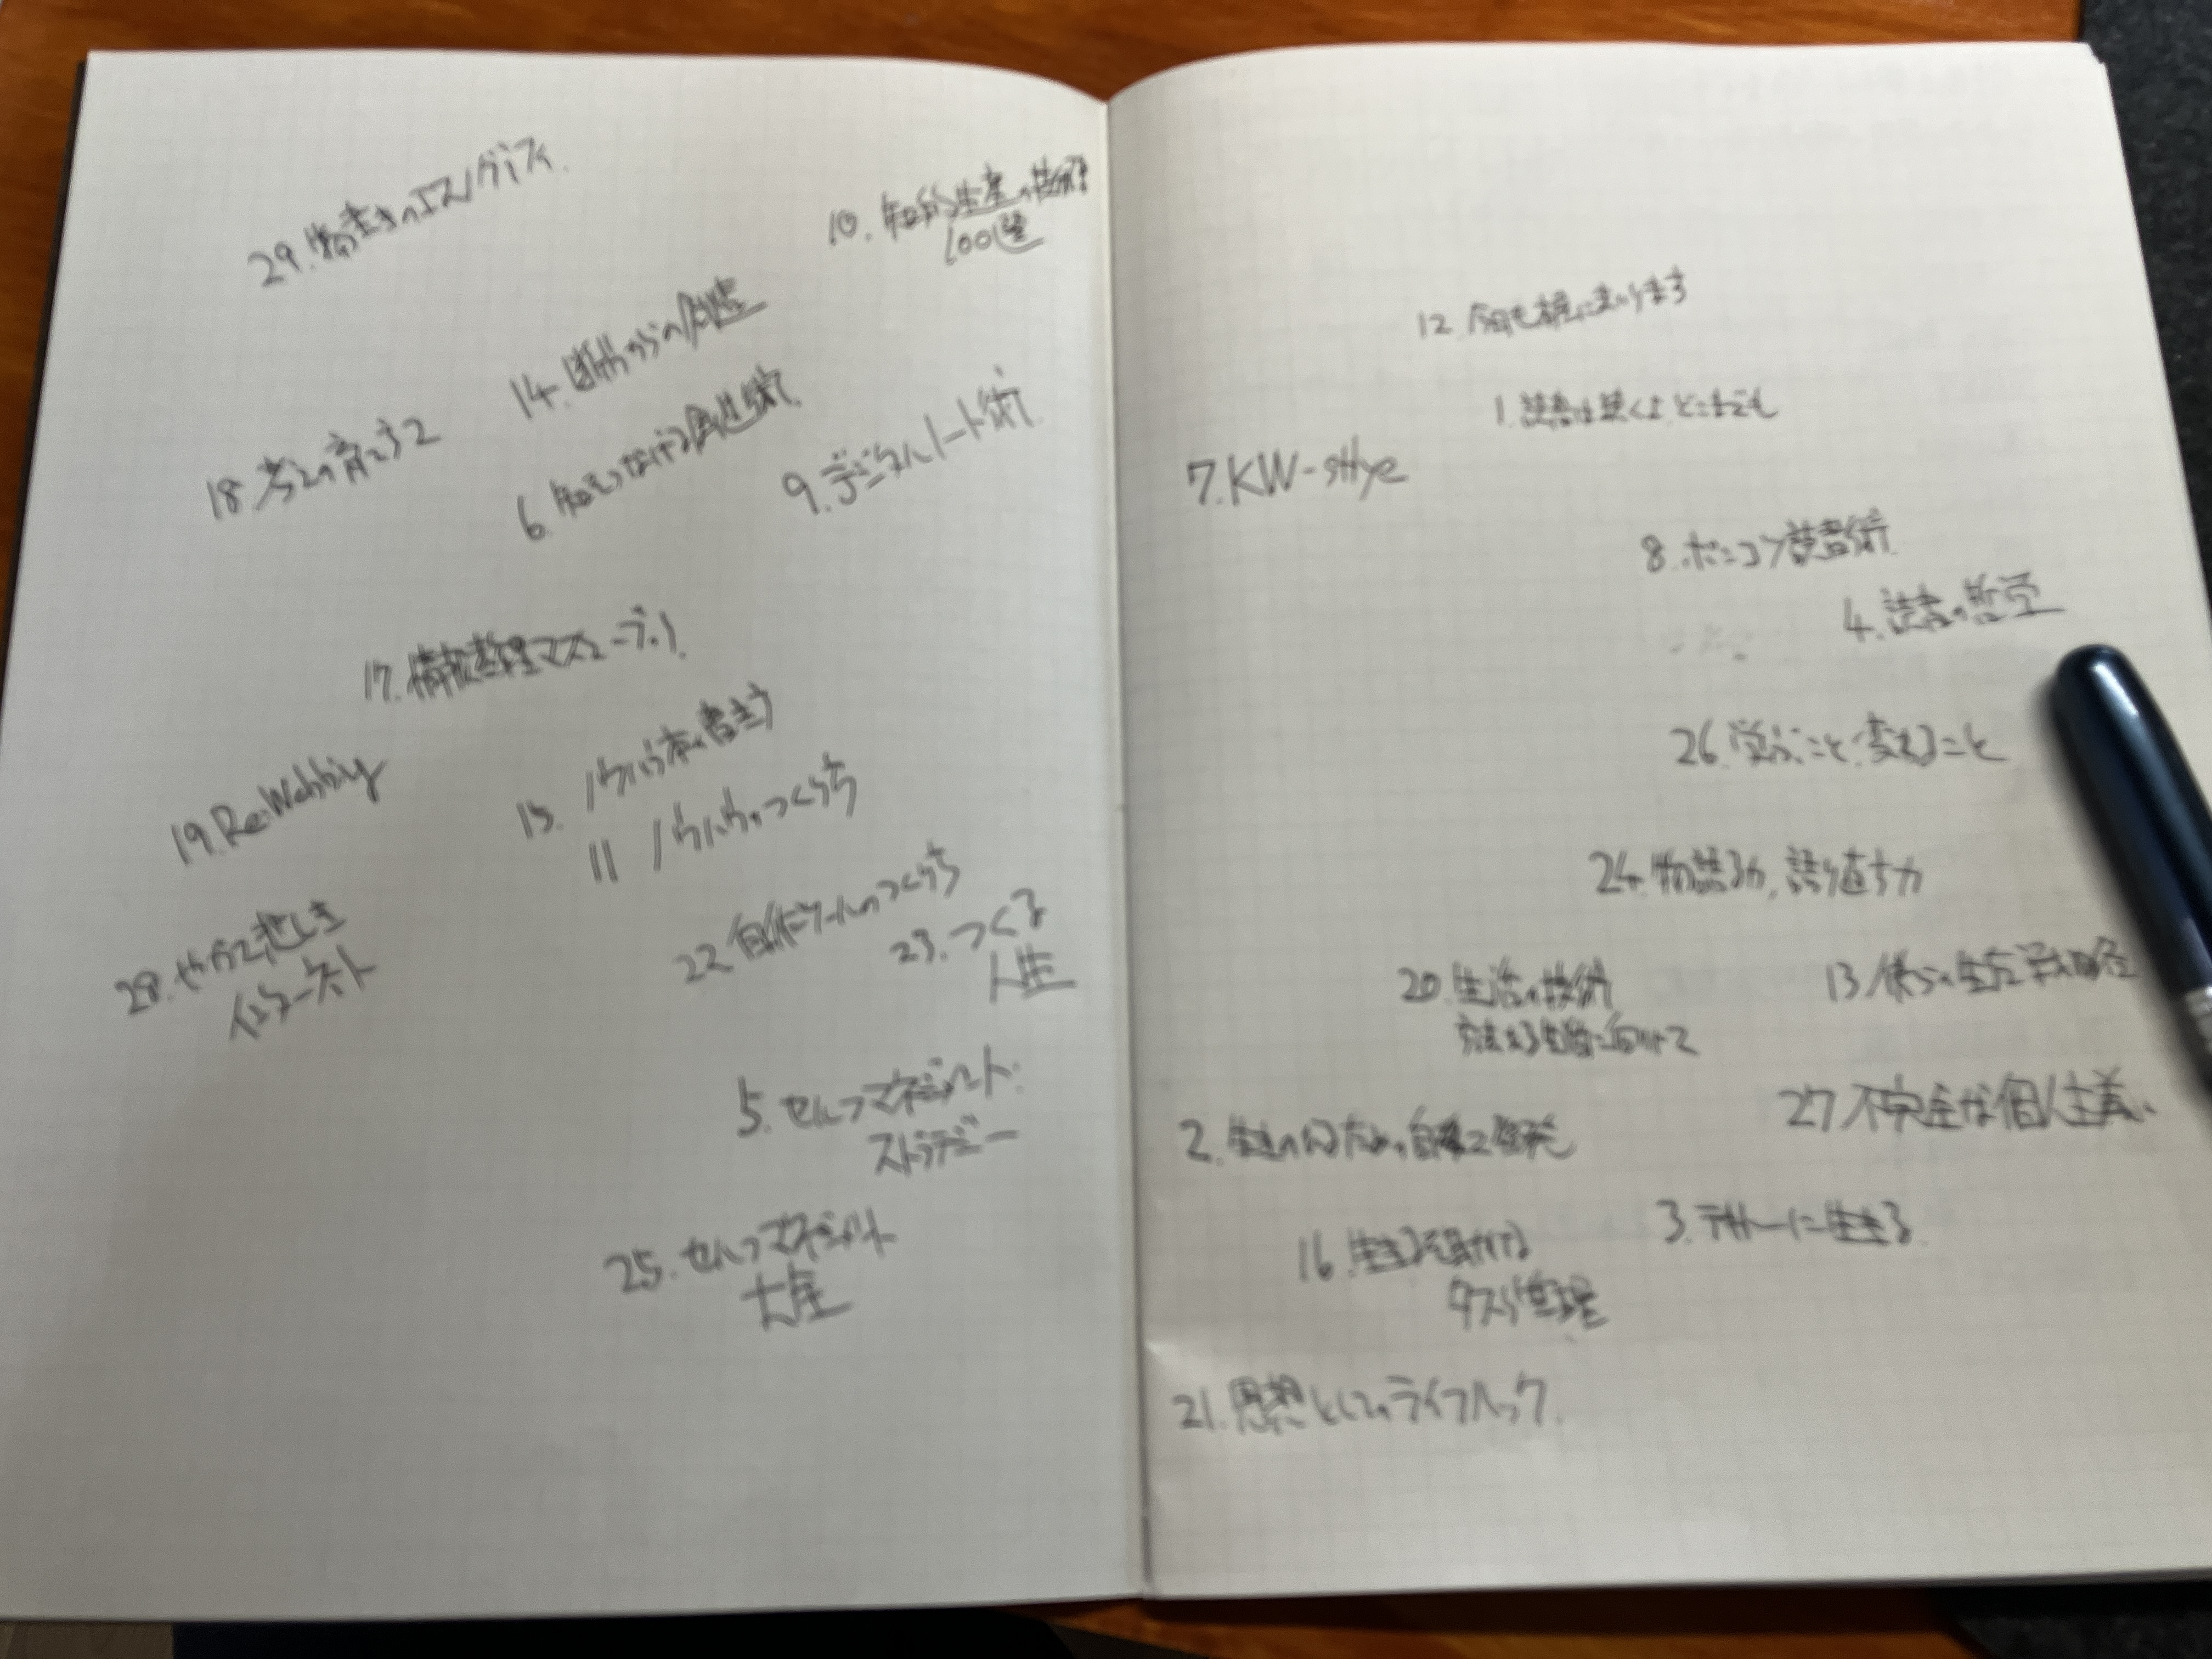 29. 物書きのエスノグラフィ.
10. 知的生産の技術書
100選
14. 断片からの創造
18. 考えの育て方2
6. 知をつなげる創造術.
9. デジタルノート術.
17. 情報整理マスターデ
19. Re:Wabbiy
15. ノウハウ本の書き方
11 ノウハウのつくり方
28. やがて悲しき
インターネット
22 自作ツールのつくり方
23. つくる
人生
5. セルフマネジメント・
ストラテジー
25. セルフマネジメント
大全
12. 今日も本屋に走ります
1. 読書は続くよどこまでも
7. KW-style
8. ポンコツ読書術
4. 読書の哲学
26. 学ぶこと・変えること
24. 物語る力、語り直す力
20. 生活の技術
向けて
13 僕らの生存戦略
27 不完全な個人主義
2. ための自己啓発
16. 生きるを助ける
タスク管理
3. テキトーに生きる
21. 思想としてのライフハック.